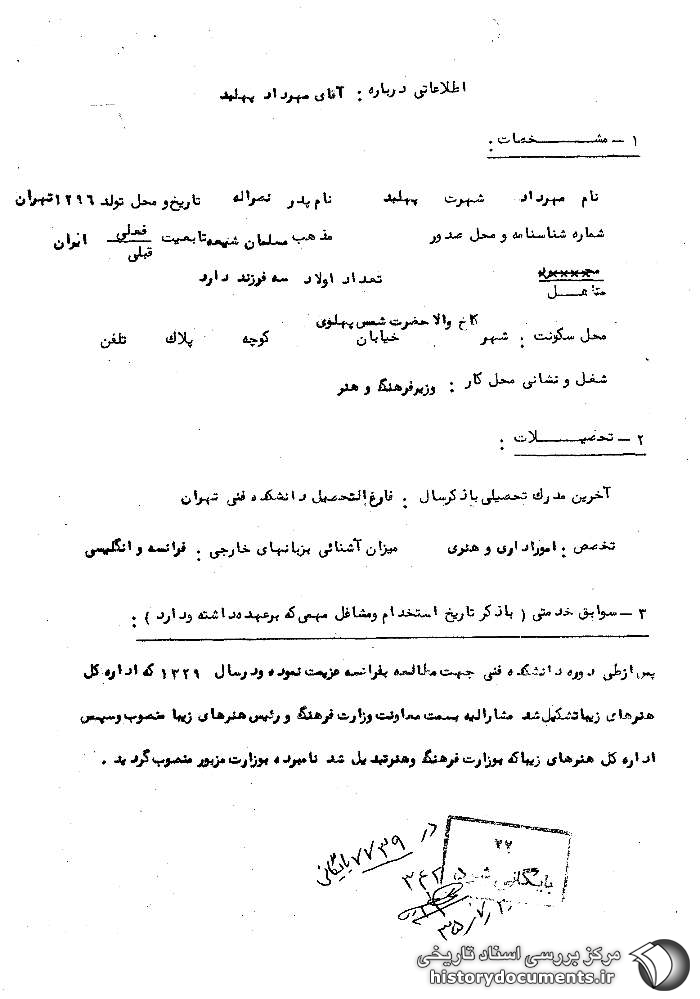 اطلاعاتی درباره : آقای مهرداد پهلبد
۱ – مشخصات :
نام مهرداد شهرت پهلبد نام پدر نصراله تاریخ و محل تولد ۱۲۹۶ تهران
شماره شناسنامه و محل صدور مذهب مسلمان شیعه تابعیت فعلی ایران
قبلی
متاهل تعداد اولاد سه فرزند دارد
کاخ والا حضرت شمس پهلوی
محل سکونت : شهر خیابان کوچه پلاک تلفن
شغل و نشانی محل کار : وزیر فرهنگ و هنر
۲ – تحصیلات :
آخرین مدرک تحصیلی باذکر سال : فارغ التحصیل دانشکده فنی تهران
تخصص : امور اداری و هنری میزان آشنائی بزبانهای خارجی : فرانسه و انگلیسی
۳ – سوابق خدمتی ( باذکر تاریخ استخدام ومشاغل مهمی که برعهده داشته ودارد ) :
پس ازطی دوره دانشکده فنی جهت مطالعه بفرانسه عزیمت نموده ودرسال ۱۳۲۹ که اداره کل
هنرهای زیبا تشکیل شد مشارالیه بسمت معاونت وزارت فرهنگ و رئیس هنرهای زیبا منصوب وسپس
اداره کل هنرهای زیبا که بوزارت فرهنگ وهنر تبدیل شد نامبرده بوزارت مزبور منصوب گردید .
در
۷۷۳۹ بایگانی
۲۲
بایگانی
مرکز بررسی اسناد تاریخی
historydocuments.ir